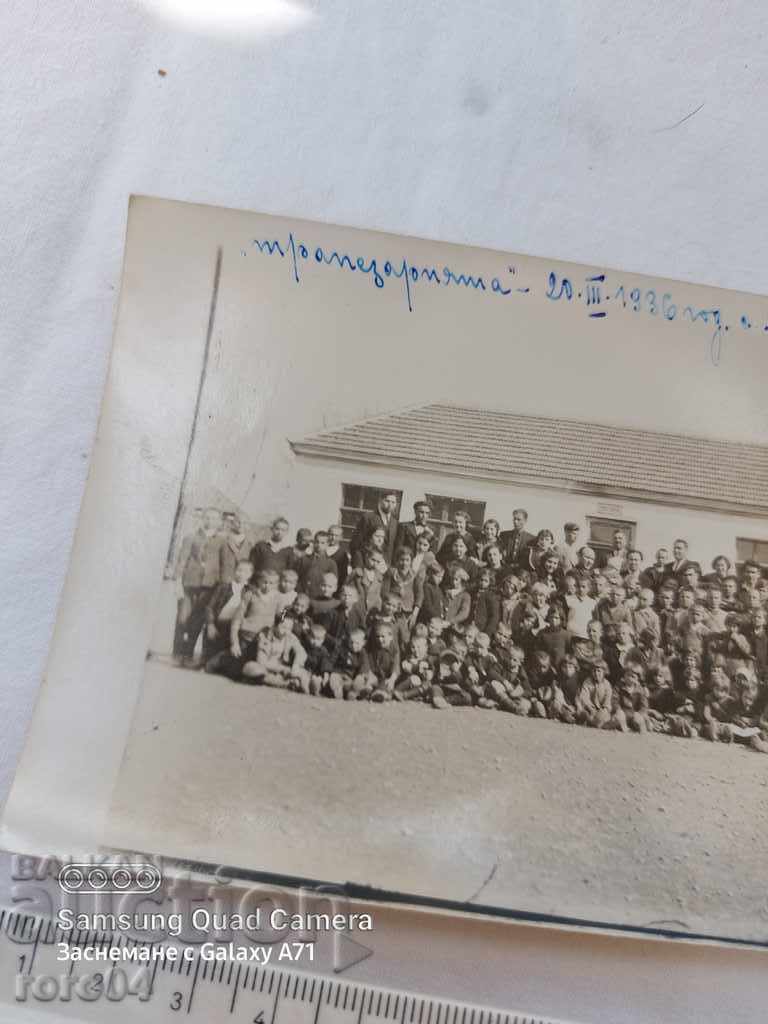 „трапезарията" - 20.III.1936 год. с.
BALKAN
auction
Samsung Quad Camera
Заснемане с Galaxy A71
1 2 3 4
roro04